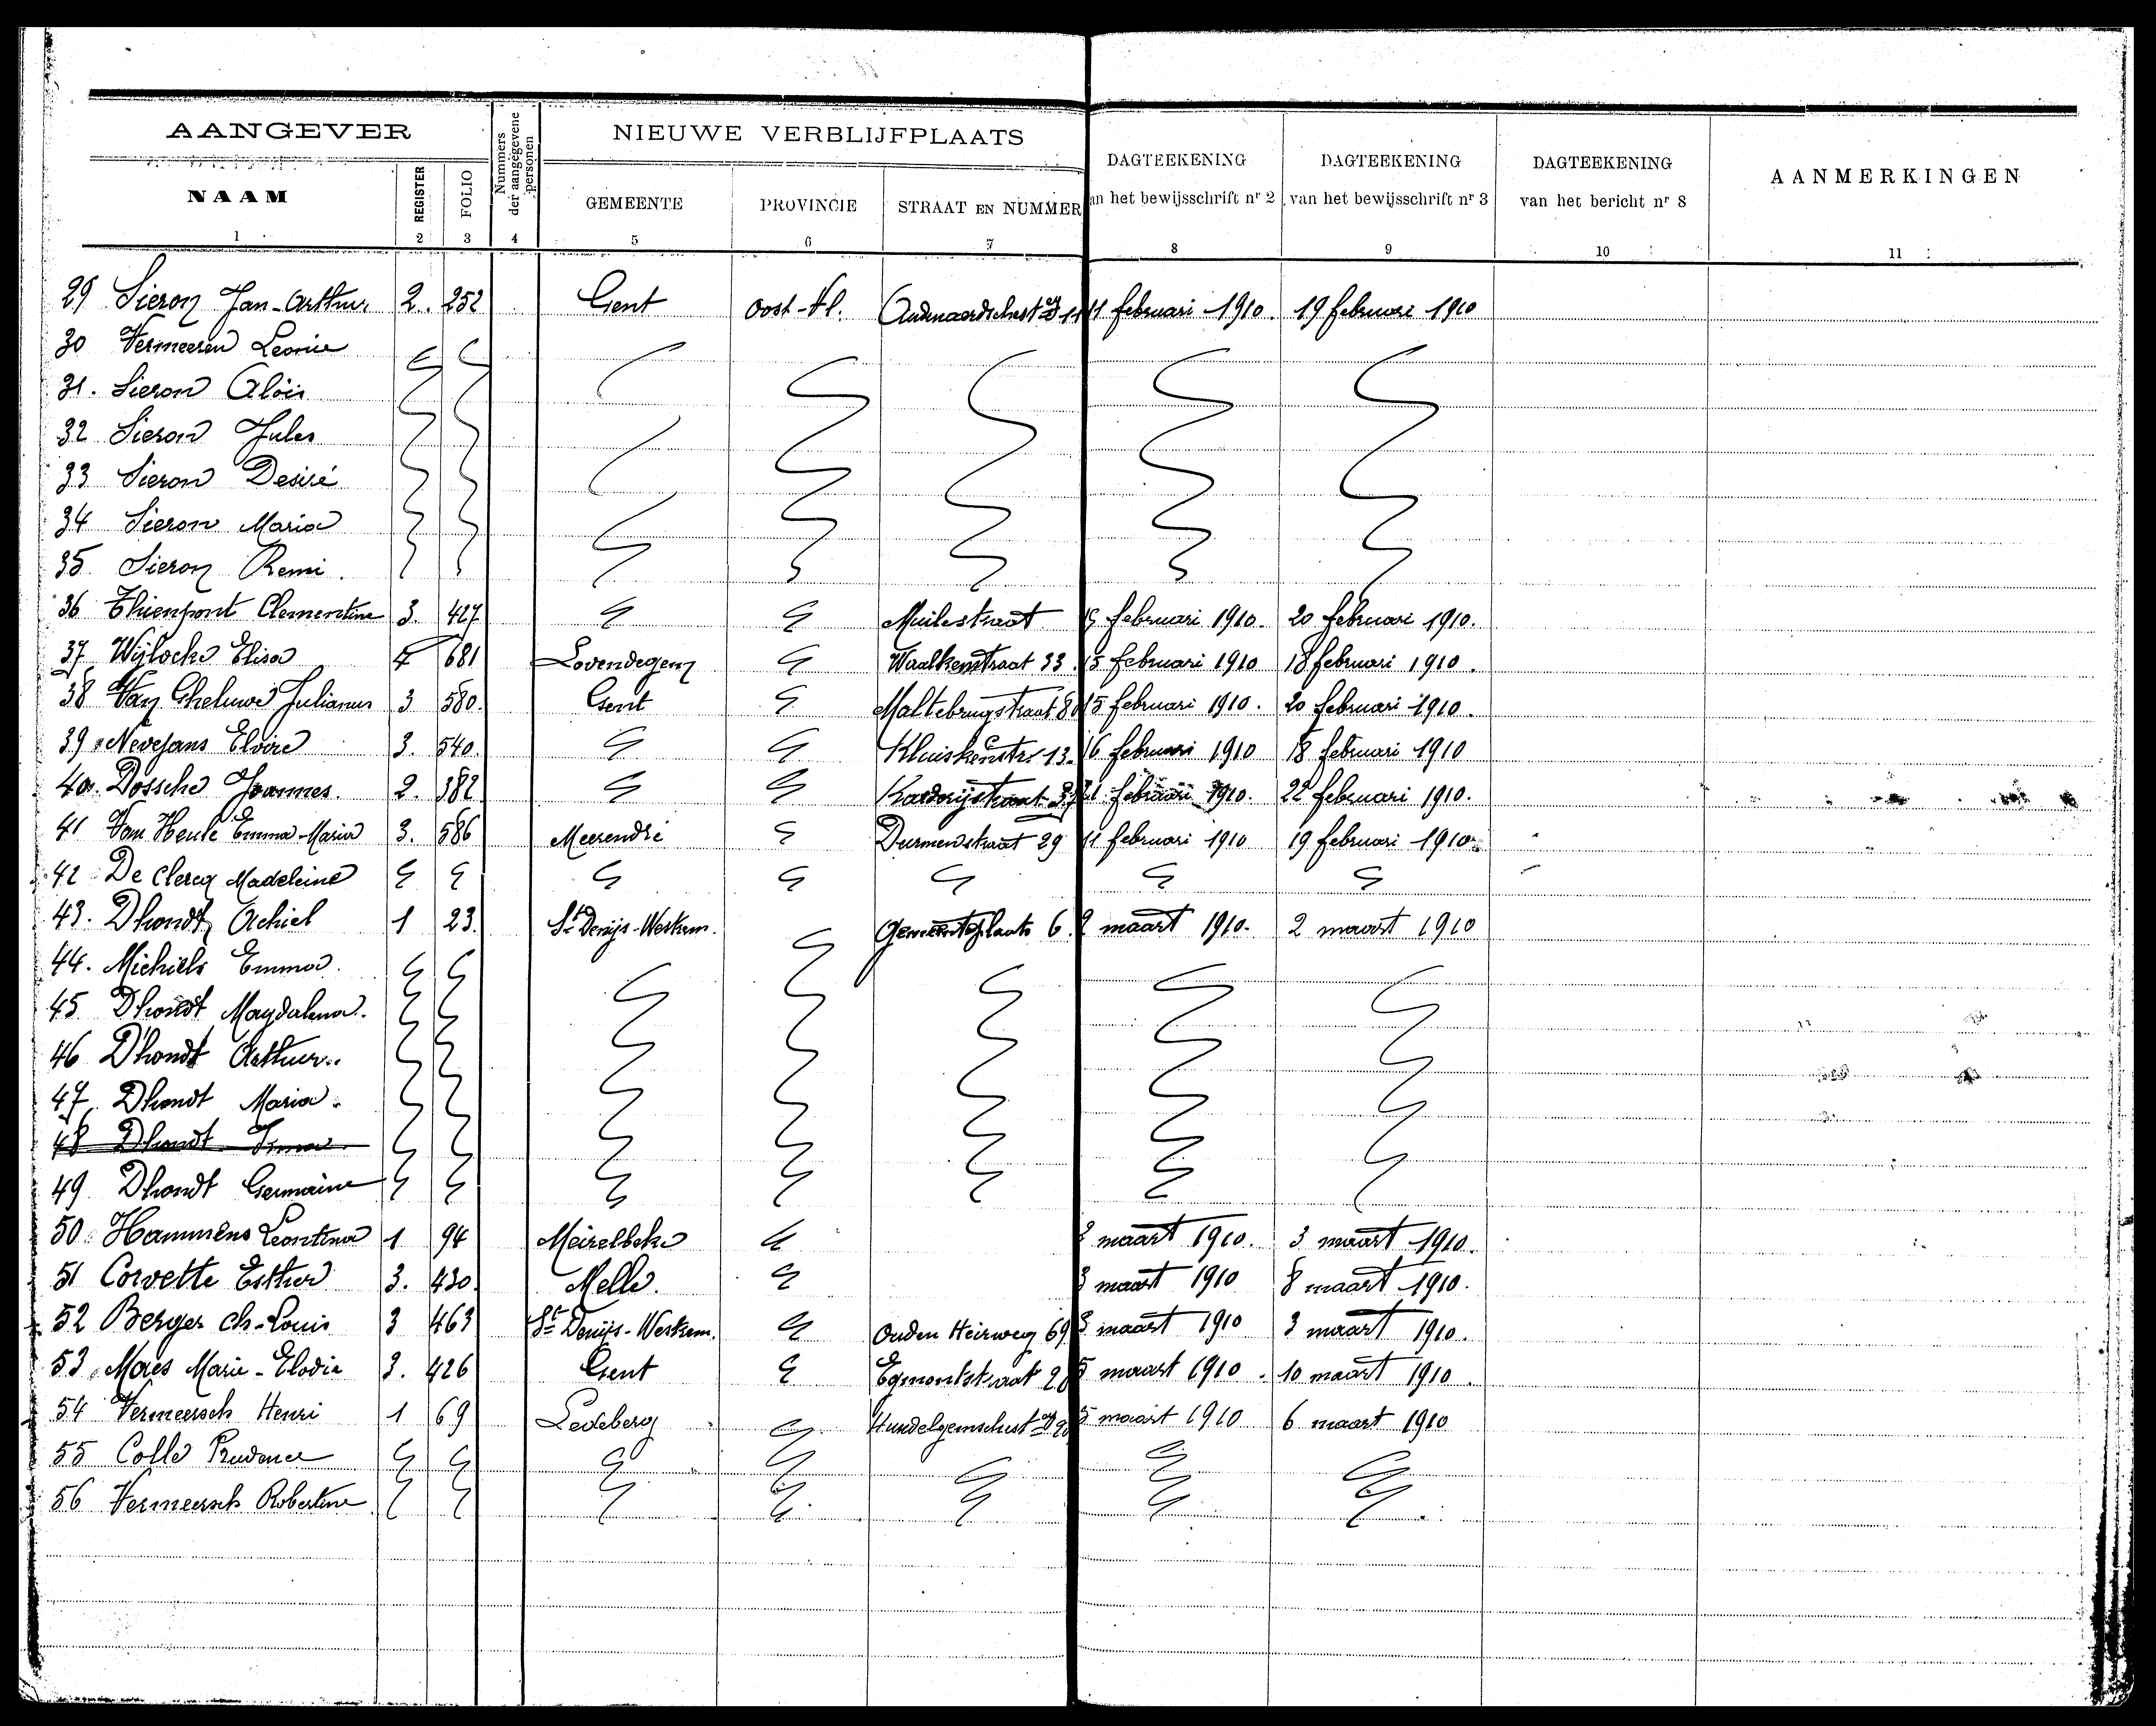 AANGEVER
Nummers der aangegevene personen
NIEUWE VERBLIJFPLAATS
NAAM REGISTER FOLIO GEMEENTE PROVINCIE STRAAT EN NUMMER
DAGTEEKENING an het bewijsschrift nr 2
DAGTEEKENING van het bewijsschrift nr 3
DAGTEEKENING van het bericht nr 8
AANMERKINGEN
1 2 3 4 5 6 7 8 9 10 11
29 Sieron Jan-Arthur 2. 252 Gent Oost-Vl. 11 februari 1910. 19 februari 1910
30 Vermeeren Leonie
31. Sieron Aloïs
32 Sieron Jules
33 Sieron Desiré
34 Sieron Maria
35 Sieron Remi.
36 Thienpont Clementine 3. 427 Muilestraat februari 1910. 20 februari 1910.
37 Wijlocke Elisa 681 Lovendegem Waalkenstraat 33. 15 februari 1910 18 februari 1910.
38 Van Gheluwe Julianus 3 580. Gent Maltebrugstraat 15 februari 1910. 20 februari 1910.
39 Nevejans Elvire 3. 540. Kluiskenstr. 13. 16 februari 1910 18 februari 1910
40. Dossche Joannes. 2. 382 februari 1910. 22 februari 1910.
41 Van Heule Emma-Maria 3. 586 Meerendré Durmenstraat 29 11 februari 1910 19 februari 1910
42 De Clercq Madeleine
43. Dhondt Achiel 1 23. St Denijs-Westrem. Gemeenteplaats 6. 2 maart 1910. 2 maart 1910
44. Michiels Emma.
45 Dhondt Magdalena.
46 Dhondt Arthur.
47 Dhondt Maria.
48 Dhondt Irma
49 Dhondt Germaine
50 Hammens Leontina 1 94 Meirelbeke maart 1910. 3 maart 1910.
51 Corvette Esther 3. 430. Melle. 3 maart 1910 8 maart 1910.
52 Berger Ch-Louis 3 463 St Denijs-Westrem. Ouden Heirweg 69 3 maart 1910 3 maart 1910.
53 Maes Marie-Elodie 3. 426 Gent Egmontstraat 5 maart 1910. 10 maart 1910.
54 Vermeersch Henri 1 69 Ledeberg 5 maart 1910 6 maart 1910
55 Colle Prudence
56 Vermeersch Robertine